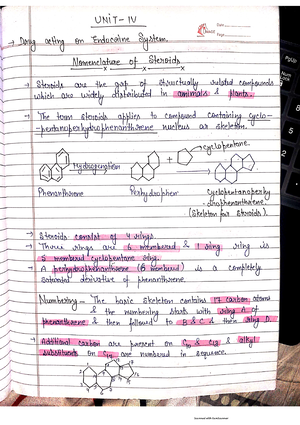 UNIT-IV
Date
Page
→ Drug acting on Endocrine System.
Nomenclature of Steroids
→ Steroids are the gp of structurally related compounds
which are widely distributed in animals & plants.
→ The term steroids applies to compound containing cyclo-
-pentanoperhydrophenanthrene nucleus or skeleton.
cyclopentane.
Hydrogenation
+
Phenanthrene Perhydrophen Cyclopentanoperhy
-drophenanthrene
(Skeleton for steroids).
→ Steroids consist of 4 rings.
→ Three rings are 6 membered & 1 ring ring is
5 membered cyclopentane ring.
→ A perhydrophenanthrene (6 membered) is a completely
saturated derivative of phenanthrene.
Numbering - The basic skeleton contains 17 carbon atoms
& the numbering starts with ring A of
phenanthrene & then followed to B & C & then ring D.
→ Additional carbon are present on C10 & C13 & alkyl
substituents on are numbered in sequence.